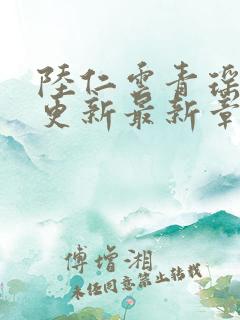 陸仁雲青瑶
更新最新章
傅增湘
未经同意禁止转载